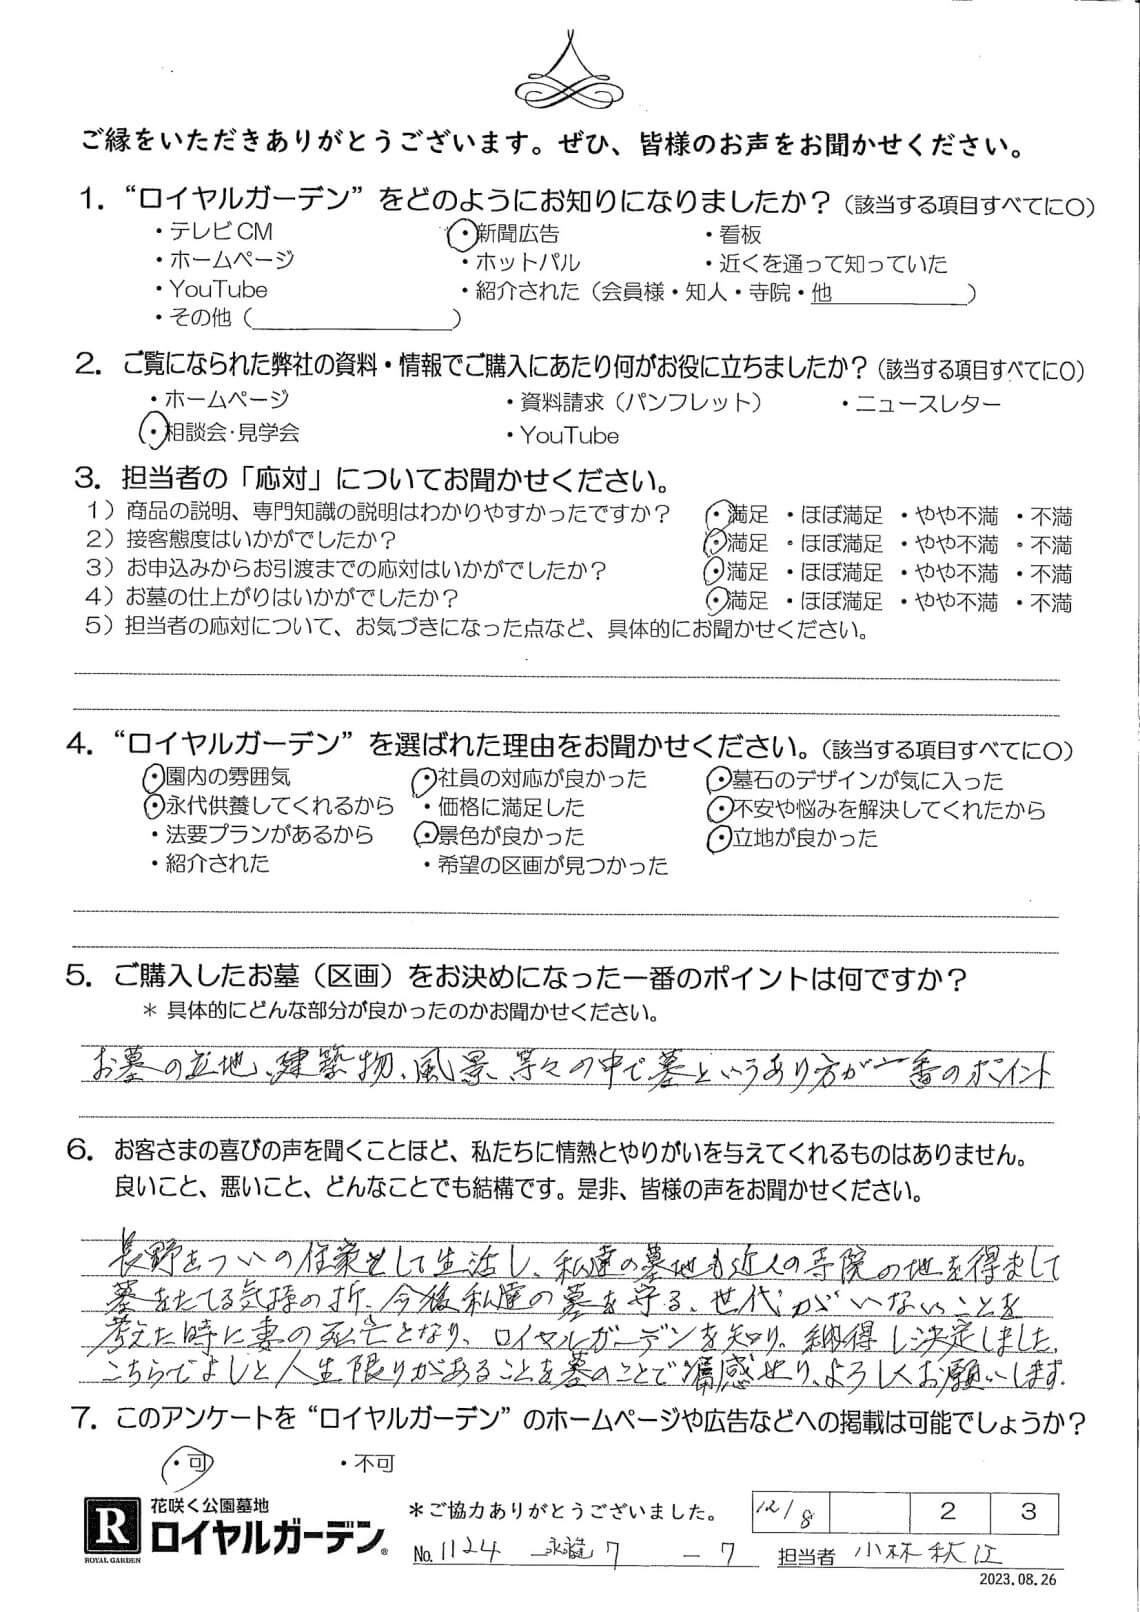 ご縁をいただきありがとうございます。ぜひ、皆様のお声をお聞かせください。
1. “ロイヤルガーデン”をどのようにお知りになりましたか？（該当する項目すべてに○）
・テレビCM ・新聞広告 ・看板
・ホームページ ・ホットパル ・近くを通って知っていた
・YouTube ・紹介された（会員様・知人・寺院・他　　　　　）
・その他（　　　　　　　　）
2. ご覧になられた弊社の資料・情報でご購入にあたり何がお役に立ちましたか？（該当する項目すべてに○）
・ホームページ ・資料請求（パンフレット） ・ニュースレター
・相談会・見学会 ・YouTube
3. 担当者の「応対」についてお聞かせください。
1）商品の説明、専門知識の説明はわかりやすかったですか？ ・満足 ・ほぼ満足 ・やや不満 ・不満
2）接客態度はいかがでしたか？ ・満足 ・ほぼ満足 ・やや不満 ・不満
3）お申込みからお引渡までの応対はいかがでしたか？ ・満足 ・ほぼ満足 ・やや不満 ・不満
4）お墓の仕上がりはいかがでしたか？ ・満足 ・ほぼ満足 ・やや不満 ・不満
5）担当者の応対について、お気づきになった点など、具体的にお聞かせください。
4. “ロイヤルガーデン”を選ばれた理由をお聞かせください。（該当する項目すべてに○）
・園内の雰囲気 ・社員の対応が良かった ・墓石のデザインが気に入った
・永代供養してくれるから ・価格に満足した ・不安や悩みを解決してくれたから
・法要プランがあるから ・景色が良かった ・立地が良かった
・紹介された ・希望の区画が見つかった
5. ご購入したお墓（区画）をお決めになった一番のポイントは何ですか？
＊ 具体的にどんな部分が良かったのかお聞かせください。
お墓の立地、建築物、風景、等々の中で墓というあり方が一番のポイント
6. お客さまの喜びの声を聞くことほど、私たちに情熱とやりがいを与えてくれるものはありません。
良いこと、悪いこと、どんなことでも結構です。是非、皆様の声をお聞かせください。
長野をついの住家として生活し、私達の墓地も近人の寺院の地を得まして
墓をたてる気持の折、今後私達の墓を守る、世代がいないことを
考えた時に妻の死亡となり、ロイヤルガーデンを知り。納得し決定しました。
こちらでよしと人生限りがあることを墓のことで感せり、よろしくお願いします。
7. このアンケートを“ロイヤルガーデン”のホームページや広告などへの掲載は可能でしょうか？
・可 ・不可
花咲く公園墓地
R ロイヤルガーデン®
ROYAL GARDEN
＊ご協力ありがとうございました。 12/8 2 3
No. 1124 7 － 7 担当者 小林秋江
2023.08.26